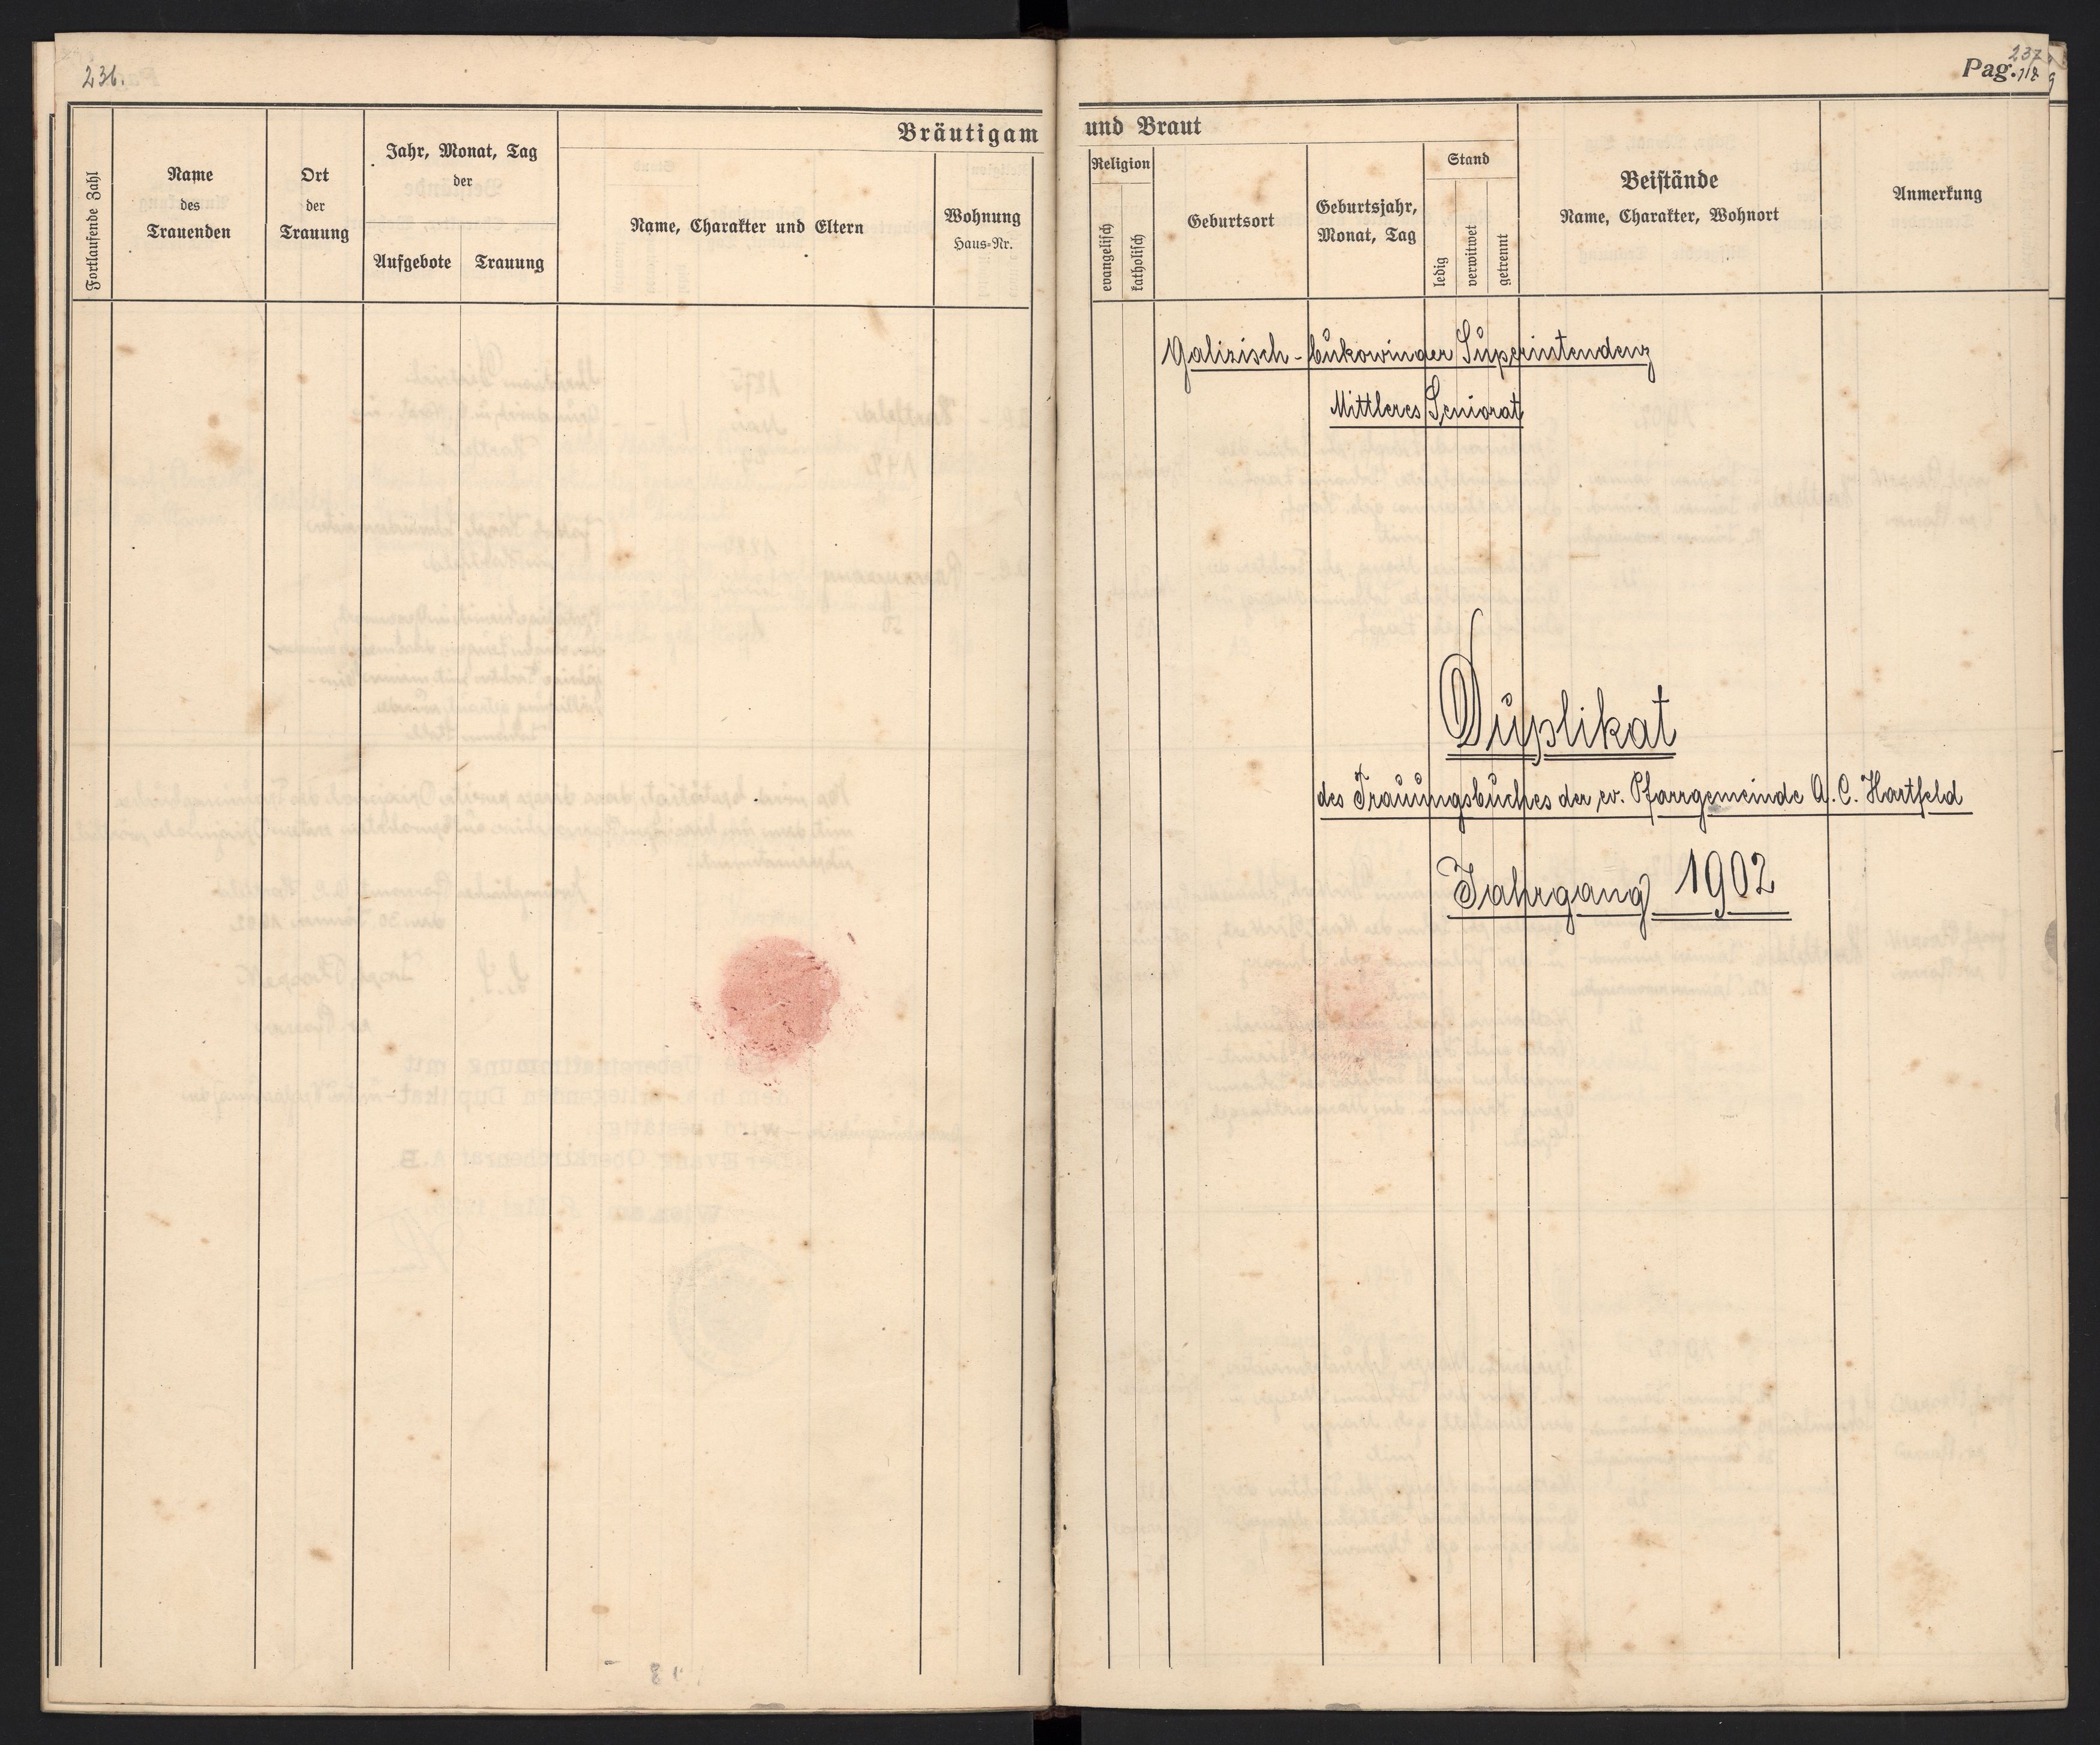 236.
Bräutigam
Fortlaufende Zahl
Name
des
Trauenden
Ort
der
Trauung
Jahr, Monat, Tag
der
Aufgebote
Trauung
Name, Charakter und Eltern
Wohnung
Haus-Nr.
237
Pag. 118
und Braut
Religion
evangelisch
katholisch
Geburtsort
Geburtsjahr,
Monat, Tag
Stand
ledig
verwitwet
getrennt
Beistände
Name, Charakter, Wohnort
Anmerkung
Galizisch-bukowinaer Superintendenz
Mittleres Seniorat
Duplikat
des Trauungsbuches der ev. Pfarrgemeinde A. C. Hartfeld
Jahrgang 1902